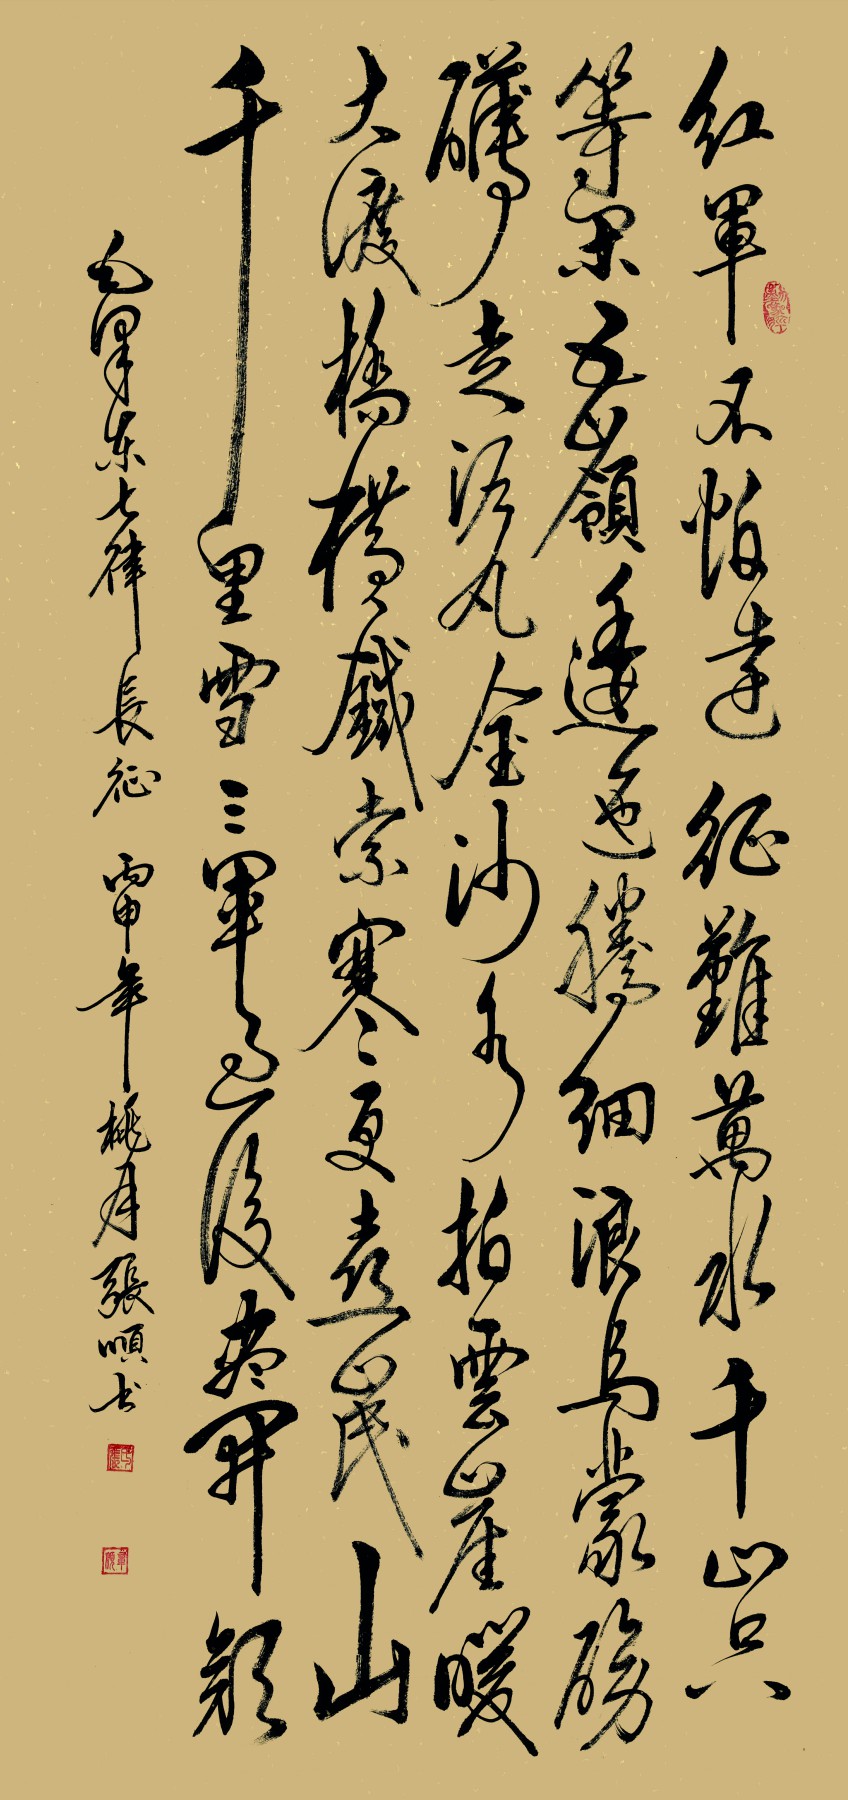 紅軍不怕遠征難萬水千山只
等閑五嶺逶迤騰細浪烏蒙磅
礴走泥丸金沙水拍雲崖暖
大渡橋橫鐵索寒更喜岷山
千里雪三軍過後盡開顏
毛澤东七律長征 丙申年桃月張順书